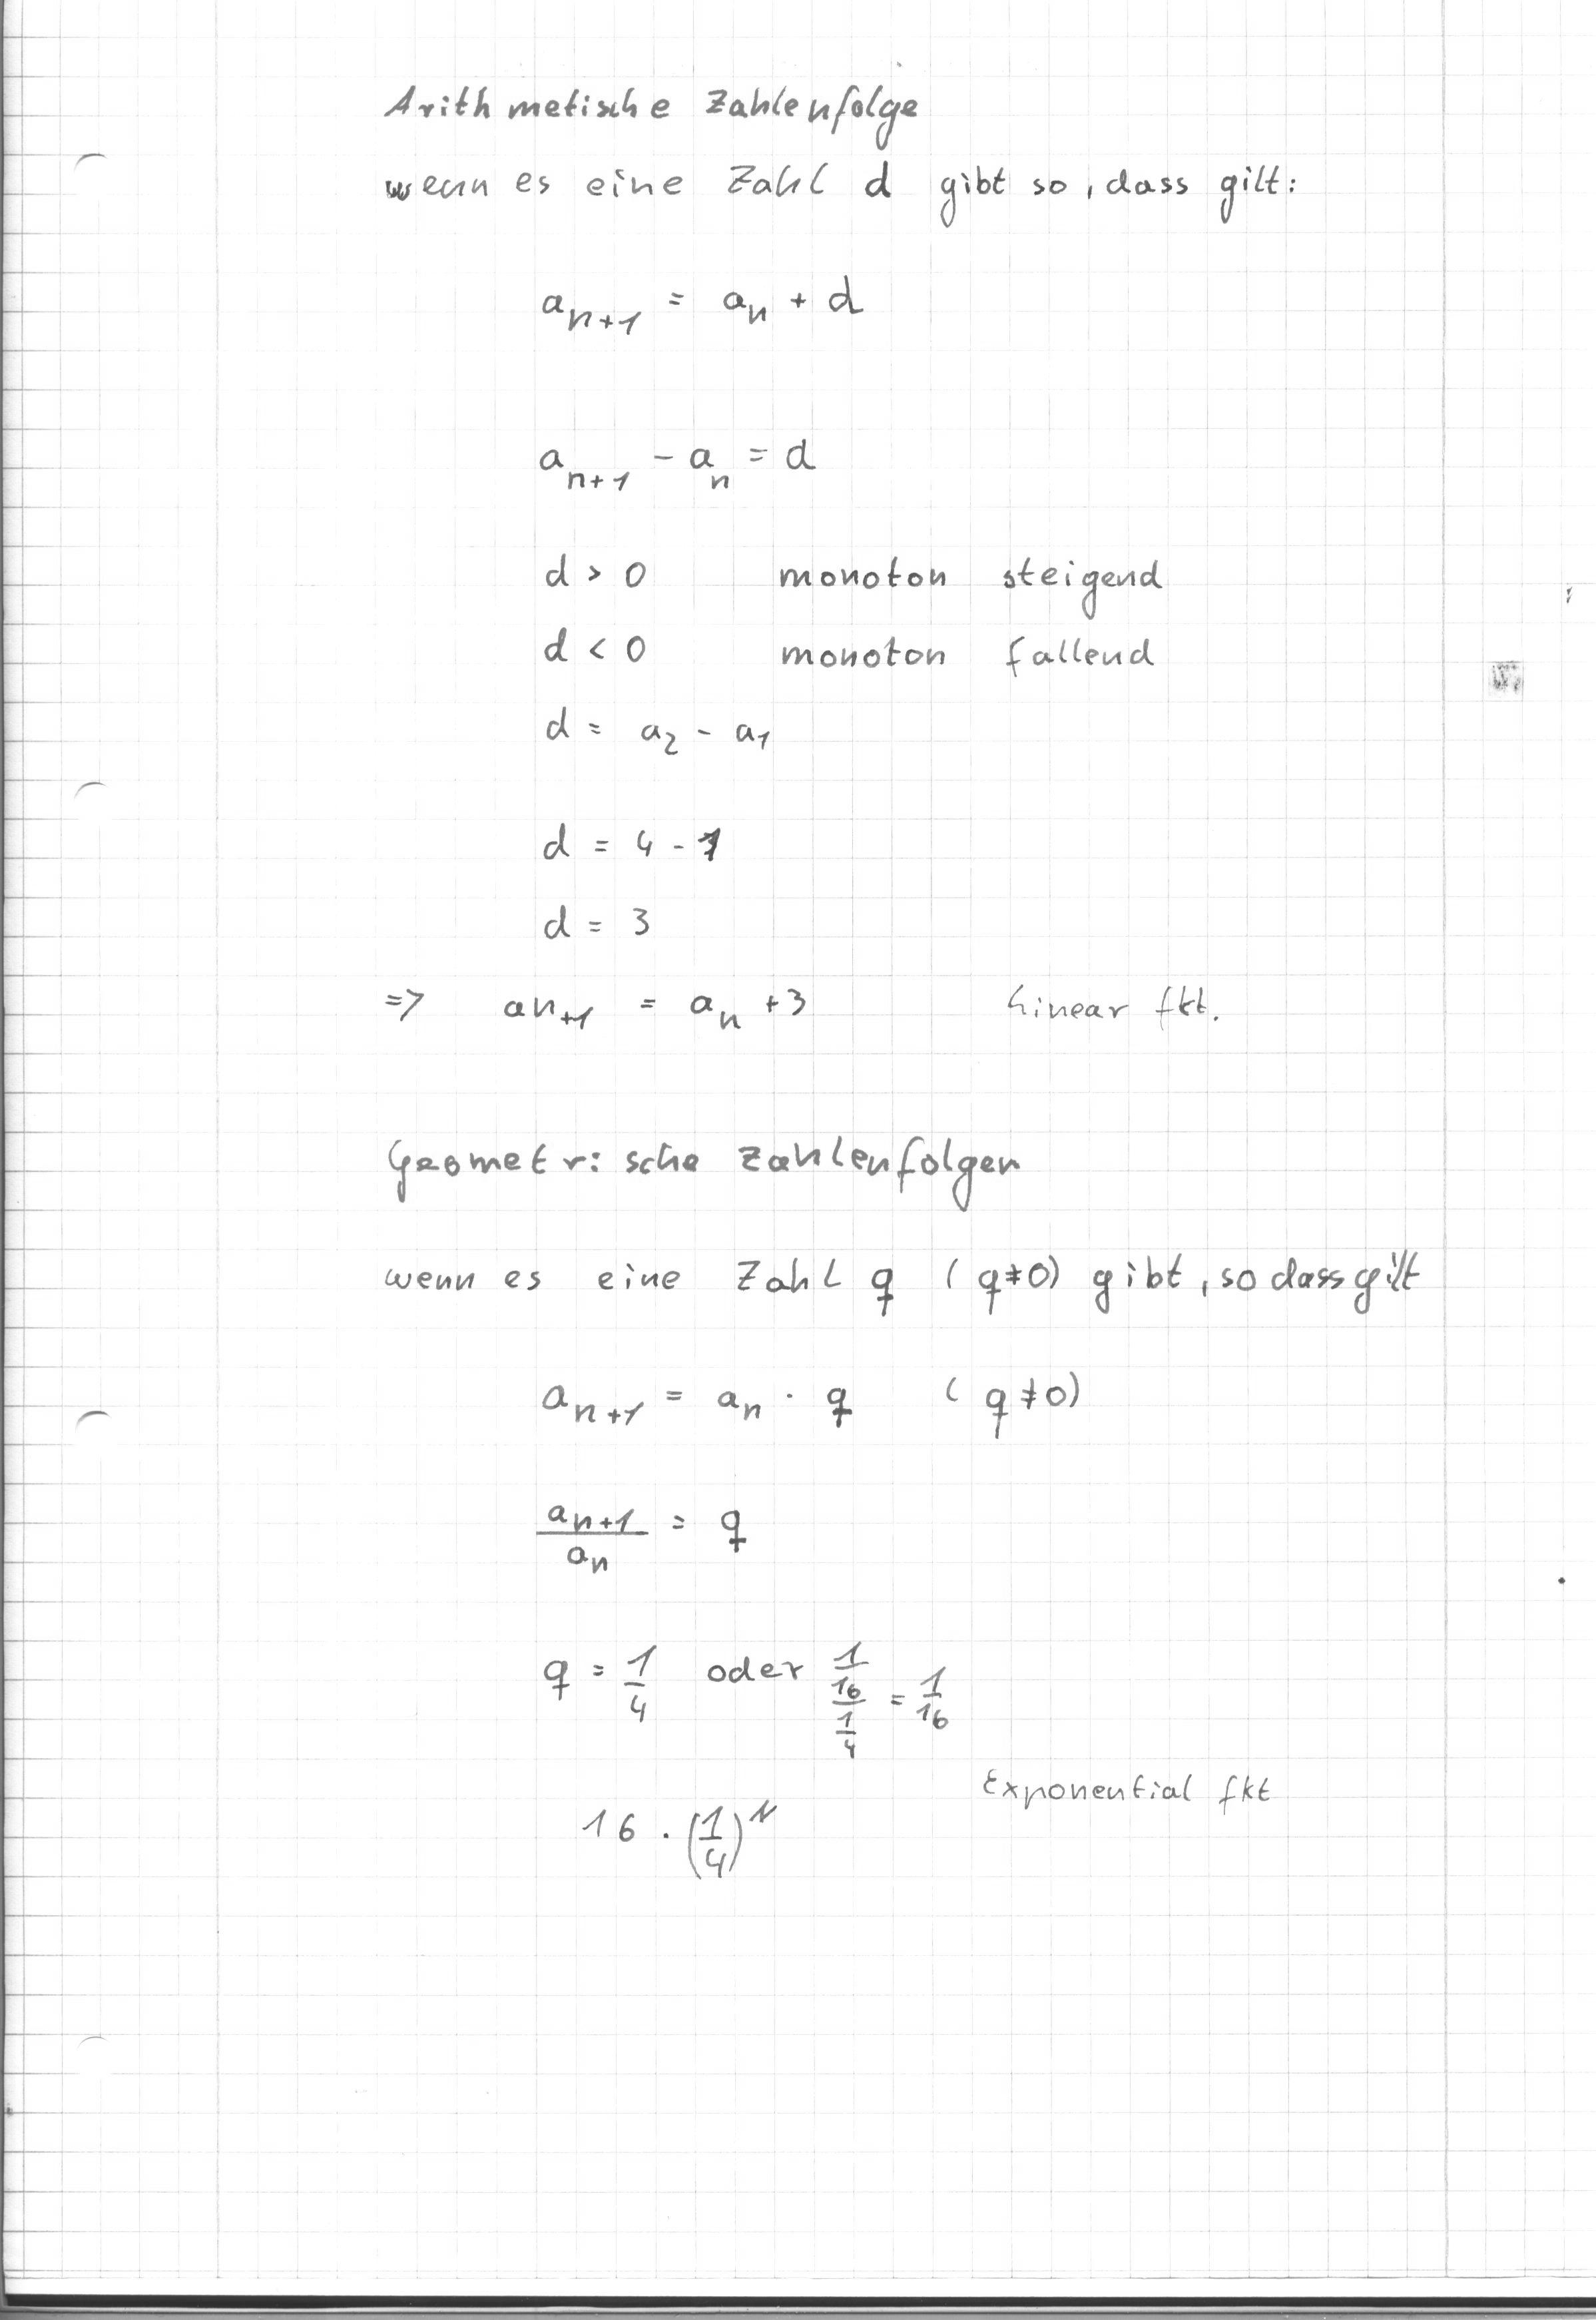 Arithmetische Zahlenfolge
wenn es eine Zahl d gibt so, dass gilt:
aₙ₊₁ = aₙ + d
aₙ₊₁ - aₙ = d
d > 0 monoton steigend
d < 0 monoton fallend
d = a₂ - a₁
d = 4 - 1
d = 3
=> aₙ₊₁ = aₙ + 3 Linear fkt.
Geometrische Zahlenfolgen
wenn es eine Zahl q (q≠0) gibt, so dass gilt
aₙ₊₁ = aₙ · q (q≠0)
aₙ₊₁/aₙ = q
q = 1/4 oder (1/16)/(1/4) = 1/16
Exponential fkt
16 · (1/4)ᴺ